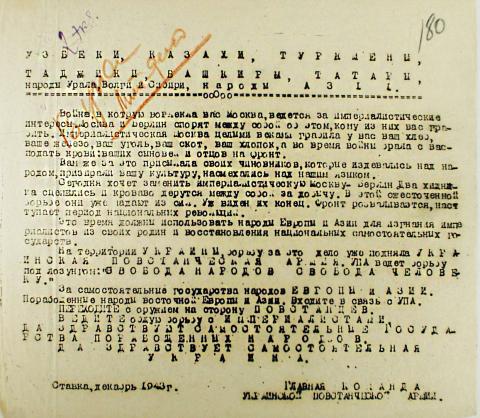 180
УЗБЕКИ, КАЗАХИ, ТУРКМЕНЫ,
ТАДЖИКИ, БАШКИРЫ, ТАТАРЫ,
народы Урала, Волги и Сибири, народы АЗІІ.
Война, в которую ворвала вас Москва, ведется за империалистические
интересы. Москва и Берлин спорят между собой о том, кому из них вас гра-
бить. Империалистическая Москва целыми веками грабила у вас ваш хлеб,
ваше железо, ваш уголь, ваш скот, ваш хлопок, а во время войны брала с вас
подать кровавших сыновей и отцов на фронт.
Вам же за это присылала своих чиновников, которые издевались над на-
родом, призирали вашу культуру, насмехались над вашим языком.
Сегодня хочет заменить империалистическую Москву Берлин. Два хищни-
ка сцепились и кроваво дерутся между собой за добычу. В этой ожесточенной
борьбе они уже падают из сил. Уж виден их конец. Фронт разваливаются, наст
тупает период национальных революций.
Это время должны использовать народы Европы и Азии для изгнания импе
риалистов из своих родин и восстановления национальных самостоятельных го-
сударств.
На территории УКРАИНЫ борьбу за это дело уже подняла УКРА-
ИНСКАЯ ПОВСТАНЧЕСКАЯ АРМИЯ. УПА ведет борьбу
под лозунгом: "СВОБОДА НАРОДОВ СВОБОДА ЧЕЛОВЕ-
КУ."
За самостоятельные государства народов ЕВРОПЫ и АЗИИ.
Порабощенные народы восточной Европы и Азии. Входите в связь с УПА.
ПЕРЕХОДИТЕ с оружием на сторону ПОВСТАНЦЕВ.
ВЕДИТЕ общую борьбу с ИМПЕРИАЛИСТАМИ.
ДА ЗДРАВСТВУЕТ САМОСТОЯТЕЛЬНЫЕ ГОСУДА-
РСТВА ПОРАБОЩЕННЫХ НАРОДОВ.
ДА ЗДРАВСТВУЕТ САМОСТОЯТЕЛЬНАЯ
УКРАИНА.
Ставка, декабрь 1943г.
ГЛАВНАЯ КОМАНДА
УКРАИНСКОЙ ПОВСТАНЧЕСКОЙ АРМИИ.